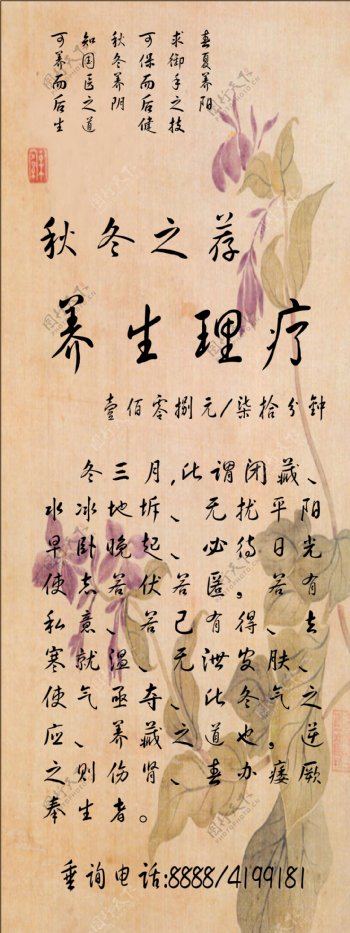 春夏养阳
求御手之技
可保而后健
秋冬养阴
知国医之道
可养而后生
秋冬之荐
养生理疗
壹佰零捌元/柒拾分钟
冬三月,此谓闭藏、
水冰地坼、无扰平阳
早卧晚起、必待日光
使志若伏若匿。若有
私意、若已有得、去
寒就温、无泄皮肤、
使气亟夺、此冬气之
应、养藏之道也。逆
之则伤肾、春办痿厥
奉生者。
垂询电话:8888/4199181